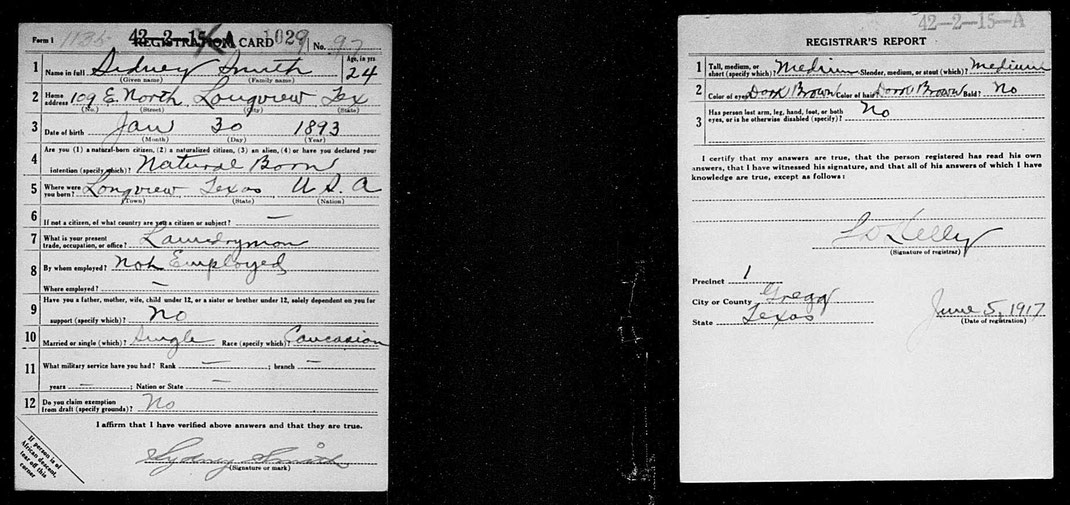 Form 1 1135 42-2-15-A 1029
REGISTRATION CARD No. 97
1 Name in full Sidney Smith Age, in yrs 24
(Given name) (Family name)
2 Home address 109 E. North, Longview Tex
(No.) (Street) (City) (State)
3 Date of birth Jan 30 1893
(Month) (Day) (Year)
4 Are you (1) a natural-born citizen, (2) a naturalized citizen, (3) an alien, (4) or have you declared your
intention (specify which)? Natural Born
5 Where were you born? Longview Texas U S. A
(Town) (State) (Nation)
6 If not a citizen, of what country are you a citizen or subject? —
7 What is your present trade, occupation, or office? Laundryman
8 By whom employed? Not Employed
Where employed? —
9 Have you a father, mother, wife, child under 12, or a sister or brother under 12, solely dependent on you for
support (specify which)? No
10 Married or single (which)? Single Race (specify which)? Caucasion
11 What military service have you had? Rank — ; branch —
years — ; Nation or State —
12 Do you claim exemption from draft (specify grounds)? No
I affirm that I have verified above answers and that they are true.
Sydney Smith
(Signature or mark)
If person is of
African descent,
tear off this
corner
42-2-15-A
REGISTRAR'S REPORT
1 Tall, medium, or short (specify which)? Medium Slender, medium, or stout (which)? Medium
2 Color of eyes Dark Brown Color of hair Dark Brown Bald? No
3 Has person lost arm, leg, hand, foot, or both
eyes, or is he otherwise disabled (specify)? No
I certify that my answers are true, that the person registered has read his own
answers, that I have witnessed his signature, and that all of his answers of which I have
knowledge are true, except as follows:
Kelly
(Signature of registrar)
Precinct 1
City or County Gregg
State Texas
June 5, 1917
(Date of registration)